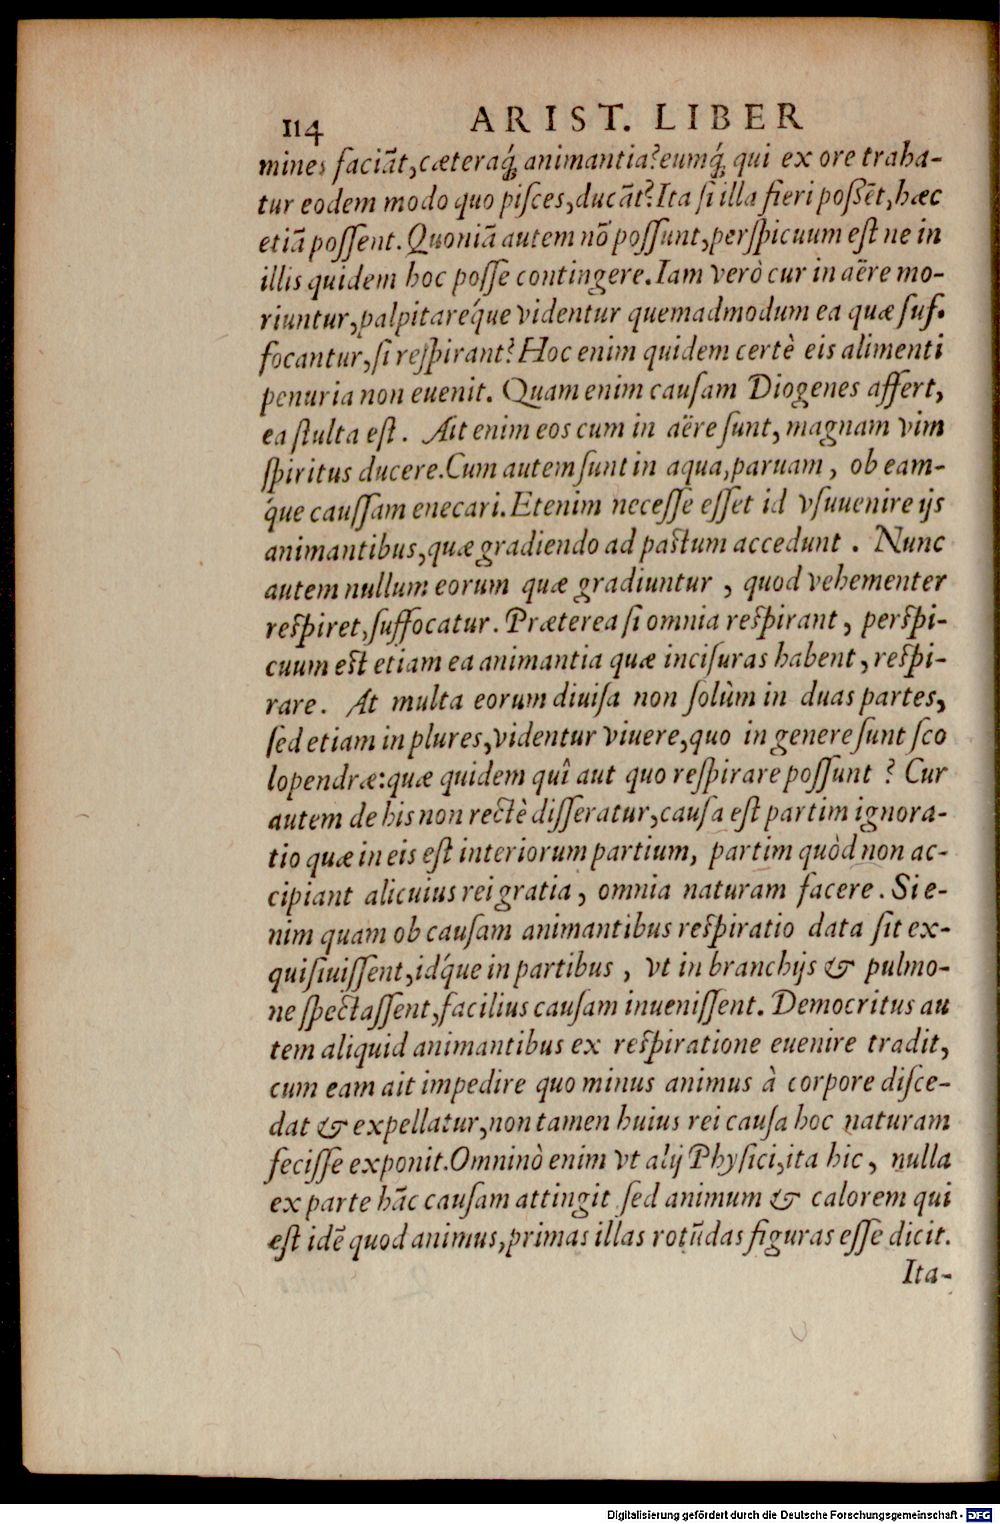 114 ARIST. LIBER
mines faciāt, cæteraq́; animantia? eumq́; qui ex ore traha-
tur eodem modo quo piſces, ducāt? Ita ſi illa fieri poßēt, hæc
etiā poſſent. Quoniā autem nō poſſunt, perſpicuum eſt ne in
illis quidem hoc poſſe contingere. Iam verò cur in aëre mo-
riuntur, palpitaréque videntur quemadmodum ea quæ ſuf-
focantur, ſi reſpirant? Hoc enim quidem certè eis alimenti
penuria non euenit. Quam enim cauſam Diogenes affert,
ea ſtulta eſt. Ait enim eos cum in aëre ſunt, magnam vim
ſpiritus ducere. Cum autem ſunt in aqua, paruam, ob eam-
q́ue cauſſam enecari. Etenim neceſſe eſſet id vſuuenire ijs
animantibus, quæ gradiendo ad paſtum accedunt. Nunc
autem nullum eorum quæ gradiuntur, quod vehementer
reſpiret, ſuffocatur. Præterea ſi omnia reſpirant, perſpi-
cuum eſt etiam ea animantia quæ inciſuras habent, reſpi-
rare. At multa eorum diuiſa non ſolùm in duas partes,
ſed etiam in plures, videntur viuere, quo in genere ſunt ſco
lopendræ: quæ quidem quî aut quo reſpirare poſſunt? Cur
autem de his non rectè diſſeratur, cauſa eſt partim ignora-
tio quæ in eis eſt interiorum partium, partim quòd non ac-
cipiant alicuius rei gratia, omnia naturam facere. Si e-
nim quam ob cauſam animantibus reſpiratio data ſit ex-
quiſiuiſſent, idq́ue in partibus, vt in branchijs & pulmo-
ne ſpectaſſent, facilius cauſam inueniſſent. Democritus au
tem aliquid animantibus ex reſpiratione euenire tradit,
cum eam ait impedire quo minus animus à corpore diſce-
dat & expellatur, non tamen huius rei cauſa hoc naturam
feciſſe exponit. Omninò enim vt alij Phyſici, ita hic, nulla
ex parte hāc cauſam attingit ſed animum & calorem qui
eſt idē quod animus, primas illas rotūdas figuras eſſe dicit.
Ita-
Digitalisierung gefördert durch die Deutsche Forschungsgemeinschaft - DFG